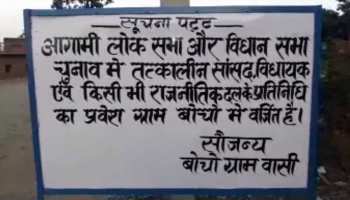 सूचना पट्ट
आगामी लोक सभा और विधान सभा
चुनाव में तत्कालीन सांसद, विधायक
एवं किसी भी राजनीतिक दल के प्रतिनिधि
का प्रवेश ग्राम बोचो में वर्जित है।
सौजन्य
बोचो ग्राम वासी